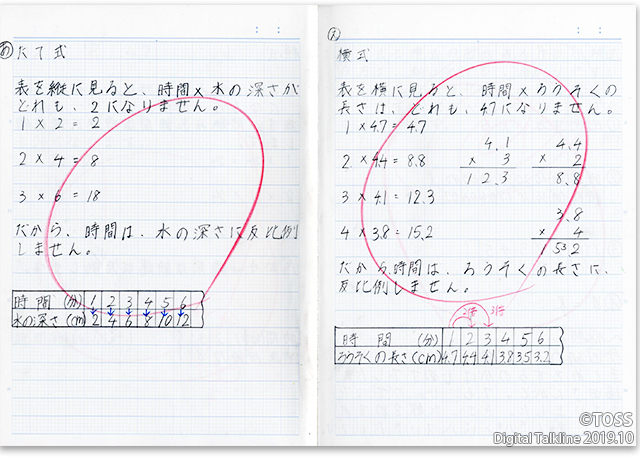 あ たて式
表を縦に見ると、時間×水の深さが
どれも、2になりません。
1 × 2 = 2
2 × 4 = 8
3 × 6 = 18
だから、時間は、水の深さに反比例
しません。
時間(分) 1 2 3 4 5 6
水の深さ(cm) 2 4 6 8 10 12
横式
表を横に見ると、時間×ろうそくの
長さは、どれも、4.7になりません。
1 × 4.7 = 4.7
2 × 4.4 = 8.8
3 × 4.1 = 12.3
4 × 3.8 = 15.2
4.1
× 3
12.3
4.4
× 2
8.8
3.8
× 4
15.2
だから時間は、ろうそくの長さに、
反比例しません。
2倍 3倍
時間(分) 1 2 3 4 5 6
ろうそくの長さ(cm) 4.7 4.4 4.1 3.8 3.5 3.2
©TOSS
Digital Talkline 2019.10